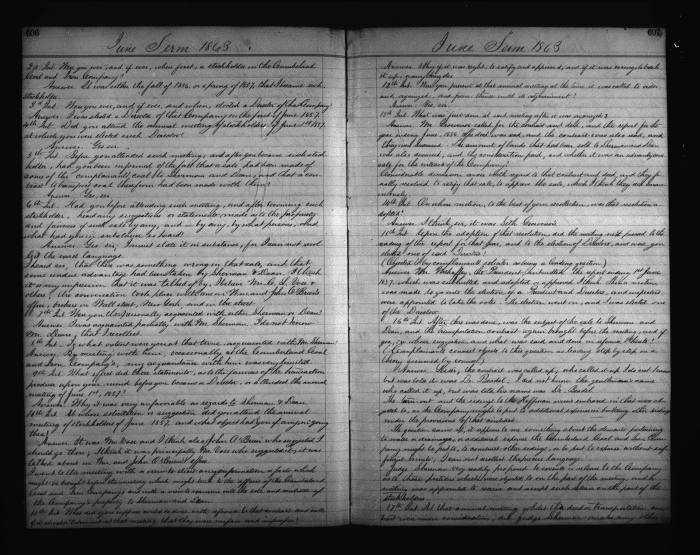 606
June Term 1863
2d Int. Were you ever, and if ever, when first, a stockholder in the Cumberland
Coal and Iron Company?
Answer. It was either the fall of 1856, or spring of 1857, that I became such
stockholder.
3d Int. Were you ever, and if ever, and when, elected a Director of that Company?
Answer. I was elected a Director of that Company on the first of June 1857.
4th Int. Did you attend the annual meeting of stockholders of June 1st 1857,
at which you were elected such Director?
Answer. Yes sir.
5th Int. Before you attended such meeting, and after you became such stock
holder, had you been informed of the fact that a sale had been made of
some of the complainants coal to Sherman and Dean, and that a con
tract to transport coal therefrom had been made with them?
Answer. Yes, sir.
6th Int. Had you before attending such meeting, and after becoming such
stockholder, heard any suggestions or statements made as to the propriety
and fairness of such sale by any, and by any, by what persons, and
what had you in substance so heard?
Answer. Yes sir, I must state it in substance, for I can not recol
lect the exact language.
I heard say that there was something wrong in that sale, and that
some undue advantage had been taken by Sherman & Dean. I think
it is my impression that it was talked of by Nelson, Mr. Ives &
others, the conversation took place with and in John A. O'Brien's
office, broker in Wall street, New York, and in the street.
7th Int. Were you then personally acquainted with either Sherman or Dean?
Answer. I was acquainted partially with Mr. Sherman. I do not know
Mr. Dean, that I recollect.
8th Int. To what extent were you at that time acquainted with Mr. Sherman?
Answer. By meeting with him, occasionally at the Cumberland Coal
and Iron Company's, my acquaintance with him was very limited.
9th Int. What effect did these statements, as to the fairness of the transaction
produce upon your mind before you became a Director, or attended the annual
meeting of June 1st, 1857?
Answer. Why it was very unfavorable as regards to Sherman & Dean.
10th Int. At whose solicitation or suggestion did you attend the annual
meeting of stockholders of June 1857, and what object had you if any in going
there?
Answer. It was Mr. Ives and I think also John A. O'Brien who suggested I
should go there; I think it was principally Mr. Ives who suggested it; it was
talked about in and John O'Brien's office.
I went to the meeting with a view to elicit any information or facts which
might be brought before the meeting which might tend to the affairs of the Cumberland
Coal and Iron Company and with a view to examine into the sale and contract of
the Company's property to Sherman and Dean.
11th Int. What did you suppose could be done with reference to that contract and sale
if it should turn out at that meeting that they were unfair and improper?
607
June Term 1863
Answer. Why if it was right, to ratify and approve it, and if it was wrong to break
it up,
12th Int. Were you present at that annual meeting at the time it was called to order
and organized, and from thence until its adjournment?
Answer. Yes sir.
13th Int. What was first done at said meeting after it was organized?
Answer. Mr. Sherman called for the contract and deed, and the report for the
year ending June 1856. The deed was read, and the contract was also read, and
they were examined. The amount of lands that had been sold to Sherman and Dean
was also discussed, and the consideration paid, and whether it was an advantageous
sale for the interests of the Company?
Considerable discussion arose with regard to that contract and deed, and they fi
nally resolved to ratify that sale, to approve the sale, which I think they did unani
mously.
14th Int. On whose motion, to the best of your recollection, was that resolution a
dopted?
Answer. I think, sir, it was Seth Grosvenor.
15th Int. Upon the adoption of that resolution did the meeting next proceed to the
reading of the report for that year, and to the election of Directors, and were you
elected one of said Directors?
(Objected to by complainants solicitor as being a leading question)
Answer. Mr. Mehaffey, the President, submitted the report ending 1st June
1857, which was submitted and adopted or approved I think. Then a motion
was made to go into the election of a President and Director, and inspectors
were appointed to take the vote. The election went on, and I was elected one
of the Directors.
16th Int. After this was done, was the subject of the sale to Sherman and
Dean, and the transportation contract again brought before the meeting, and if
yea, by whose suggestion and what was said and done in reference thereto?
(Complainants counsel objects to this question as leading step by step in a
theory assumed by counsel)
Answer. Yes sir, the contract was called up, who called it up I do not know
but was told it was La Roubel. I did not know the gentleman's name
who called it up, but was told the name was La Roubel.
The turn out and the sidings to the Hoffman mines embraced in that was ob
jected to, as the Company might be put to additional expense in building other sidings
under the provisions of that contract.
The question came up, it appears to me something about the tenants pertaining
to make a drainage, or additional expense the Cumberland Coal and Iron Com
pany might be put to, to construct other sidings, or be put to expense without suf
ficient limit. I am not certain, I suppose language.
Judge Sherman very readily proposed to execute a release to the Company
as to those portions which were objected to on the part of the meeting, and a
meeting was appointed to receive and accept such release on the part of the
stockholders.
17th Int. At that annual meeting, whilst the deed or transportation con
tract was under consideration, did Judge Sherman make any other